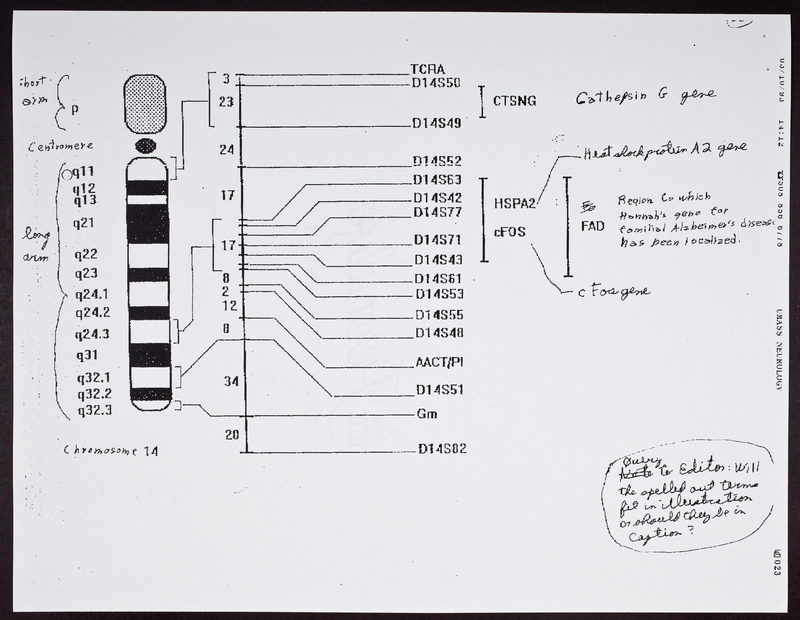 short
arm
p
Centromere
long
arm
q11
q12
q13
q21
q22
q23
q24.1
q24.2
q24.3
q31
q32.1
q32.2
q32.3
Chromosome 14
3
23
24
17
17
8
2
12
8
34
20
TCRA
D14S50
D14S49
D14S52
D14S63
D14S42
D14S77
D14S71
D14S43
D14S61
D14S53
D14S55
D14S48
AACT/PI
D14S51
Gm
D14S82
CTSNG
Cathepsin G gene
Heat shock protein A2 gene
HSPA2
cFOS
FAD
Region to which
Hannah's gene for
familial Alzheimer's disease
has been localized.
c Fos gene
Query
to Editor: Will
the spelled out terms
fit in illustration
or should they be in
caption?
14:12
UMASS NEUROLOGY
023